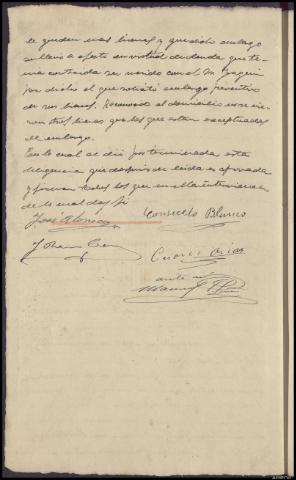 le queden mas bienes y que dicho embargo
se llevo a efecto en virtud de deuda que te-
nia contraida su marido con el Sr. Joaquin
por dicho el que solicitó embargo preventivo
de sus bienes. Reconocido el domicilio no se vie-
ron mas bienes que los que estan exceptuados
de embargo.
Con lo cual se dió por terminada esta
diligencia que despues de leida es aprobada
y firman todos los que en ella intervienen
de lo cual doy fe
José Alonso Consuelo Blanco
Cesareo Arias
ante mi
Manuel